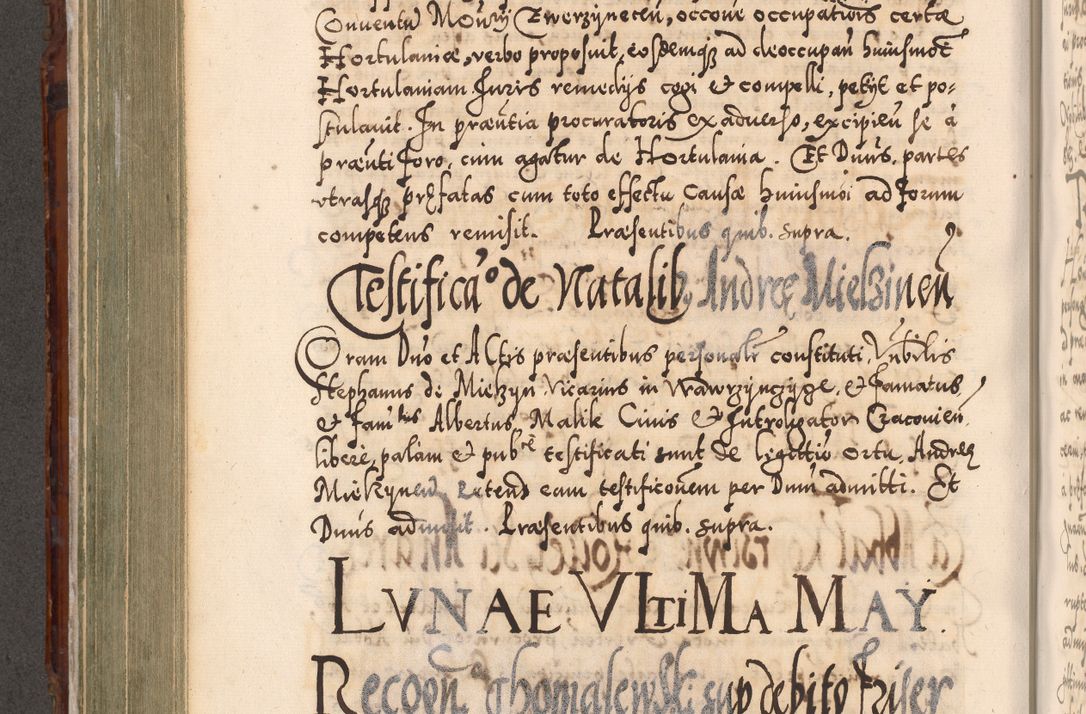 Conventu Moniy Zwerzynecen, occoue occupationis certae
Hortulaniae, verbo proposuit, eosdemq; ad deoccupan huiusmoi
Hortulaniam Juris remedijs cogi et compelli, petijt et po-
stulauit. In praeentia procuratoris ex aduerso, excipien se à
praeenti foro, cum agatur de Hortulania. Et Dnus, partes
vtrasq; pręfatas cum toto effectu causae huiusmoi ad Forum
competens remisit. Praesentibus quib. supra.
Testificao de Natalib. Andreę Mielzinen
Coram Dno et Actis praesentibus personalr constituti, Vnbilis
Stephanus de Mielzyn Vicarius in Wawrzynczyce, et Famatus
et Famlis Albertus Malik Ciuis et Introligator Cracouien
libere, palam et pubce testificati sunt de legittio ortu Andreę
Mielzynen, petend eam testificonem per Dnum admitti. Et
Dnus admisit. Praesentibus quib. supra.
LVNAE VLTiMA MAY.
Recogn Ghomalewski sup debito